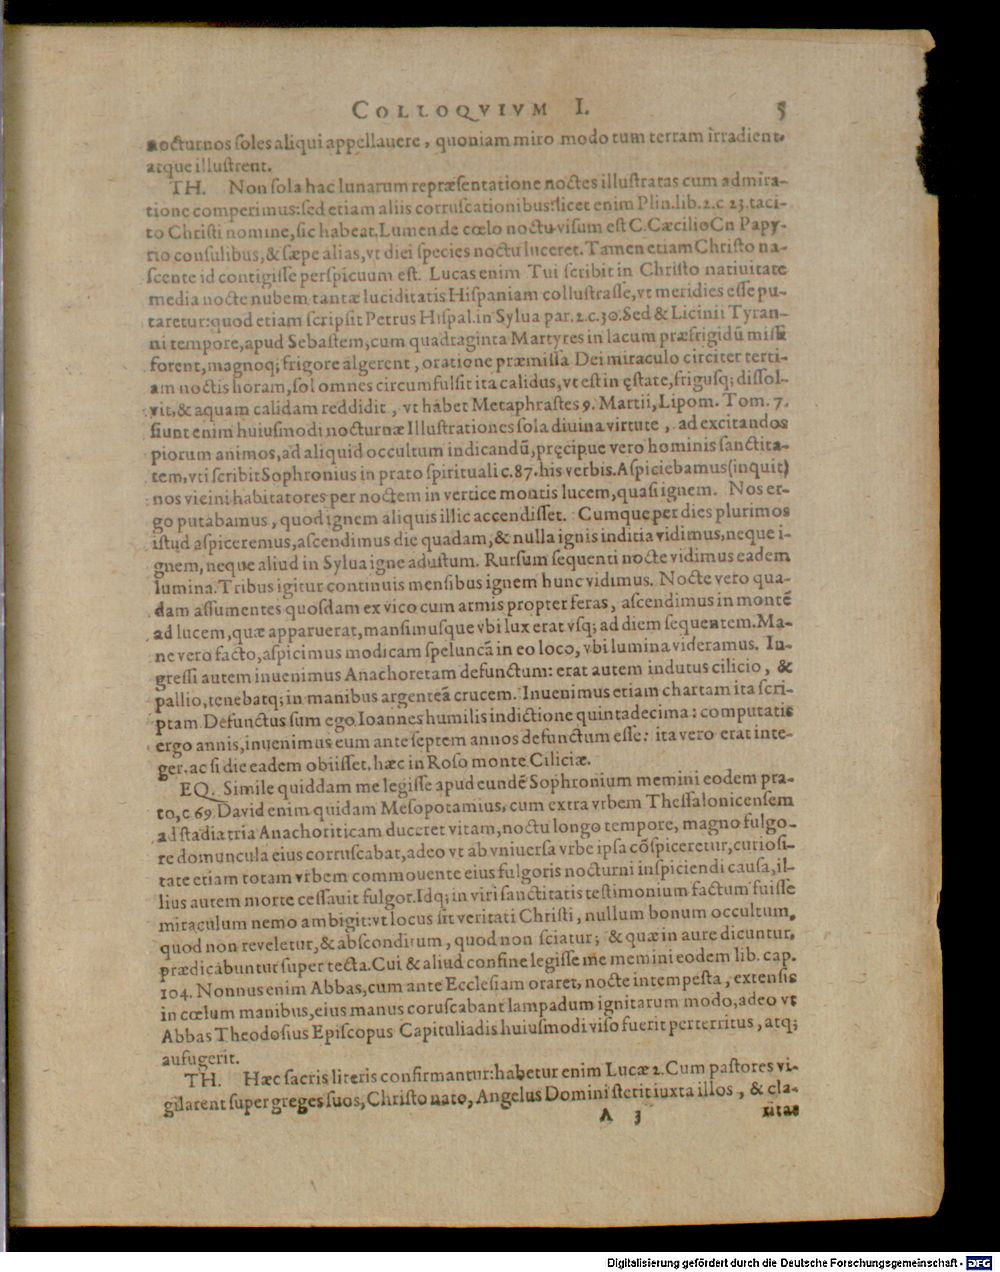 COLLOQVIVM I. 5
nocturnos ſoles aliqui appellauere, quoniam miro modo tum terram irradient,
atque illuſtrent.
TH. Non ſola hac lunarum repræſentatione noctes illuſtratas cum admira-
tione comperimus: ſed etiam aliis corruſcationibus: licet enim Plin. lib. 2. c 23. taci-
to Chriſti nomine, ſic habeat, Lumen de cœlo noctu viſum eſt C. Cæcilio Cn Papy-
rio conſulibus, & ſæpe alias, vt diei ſpecies noctu luceret. Tamen etiam Chriſto na-
ſcente id contigiſſe perſpicuum eſt. Lucas enim Tui ſcribit in Chriſto natiuitate
media nocte nubem tantæ luciditatis Hiſpaniam colluſtraſſe, vt meridies eſſe pu-
taretur: quod etiam ſcripſit Petrus Hiſpal. in Sylua par. 2. c. 30. Sed & Licinii Tyran-
ni tempore, apud Sebaſtem, cum quadraginta Martyres in lacum præfrigidũ miſſi
forent, magnoq; frigore algerent, oratione præmiſſa Dei miraculo circiter terti-
am noctis horam, ſol omnes circumfulſit ita calidus, vt eſt in ęſtate, frigusq; diſſol-
vit, & aquam calidam reddidit, vt habet Metaphraſtes 9. Martii, Lipom. Tom. 7.
fiunt enim huiuſmodi nocturnæ Illuſtrationes ſola diuina virtute, ad excitandos
piorum animos, ad aliquid occultum indicandũ, pręcipue vero hominis ſanctita-
tem, vti ſcribit Sophronius in prato ſpirituali c. 87. his verbis. Aſpiciebamus (inquit)
nos vicini habitatores per noctem in vertice montis lucem, quaſi ignem. Nos er-
go putabamus, quod ignem aliquis illic accendiſſet. Cumque per dies plurimos
iſtud aſpiceremus, aſcendimus die quadam, & nulla ignis inditia vidimus, neque i-
gnem, neque aliud in Sylua igne aduſtum. Rurſum ſequenti nocte vidimus eadem
lumina. Tribus igitur continuis menſibus ignem hunc vidimus. Nocte vero qua-
dam aſſumentes quoſdam ex vico cum armis propter feras, aſcendimus in montẽ
ad lucem, quæ apparuerat, manſimuſque vbi lux erat vſq; ad diem ſequentem. Ma-
ne vero facto, aſpicimus modicam ſpeluncã in eo loco, vbi lumina videramus. In-
greſſi autem inuenimus Anachoretam defunctum: erat autem indutus cilicio, &
pallio, tenebatq; in manibus argenteã crucem. Inuenimus etiam chartam ita ſcri-
ptam Defunctus ſum ego Ioannes humilis indictione quintadecima: computatis
ergo annis, inuenimus eum ante ſeptem annos defunctum eſſe: ita vero erat inte-
ger, ac ſi die eadem obiiſſet. hæc in Roſo monte Ciliciæ.
EQ. Simile quiddam me legiſſe apud eundẽ Sophronium memini eodem pra-
to, c 69 David enim quidam Meſopotamius, cum extra vrbem Theſſalonicenſem
ad ſtadia tria Anachoriticam duceret vitam, noctu longo tempore, magno fulgo-
re domuncula eius corruſcabat, adeo vt ab vniuerſa vrbe ipſa cõſpiceretur, curioſi-
tate etiam totam vrbem commouente eius fulgoris nocturni inſpiciendi cauſa, il-
lius autem morte ceſſauit fulgor. Idq; in viri ſanctitatis teſtimonium factum fuiſſe
miraculum nemo ambigit: vt locus ſit veritati Chriſti, nullum bonum occultum,
quod non reveletur, & abſconditum, quod non ſciatur; & quæ in aure dicuntur,
prædicabuntur ſuper tecta. Cui & aliud confine legiſſe me memini eodem lib. cap.
104. Nonnus enim Abbas, cum ante Eccleſiam oraret, nocte intempeſta, extenſis
in cœlum manibus, eius manus coruſcabant lampadum ignitarum modo, adeo vt
Abbas Theodoſius Epiſcopus Capituliadis huiuſmodi viſo fuerit perterritus, atq;
aufugerit.
TH. Hæc ſacris literis confirmantur: habetur enim Lucæ 2. Cum paſtores vi-
gilarent ſuper greges ſuos, Chriſto nato, Angelus Domini ſtetit iuxta illos, & cla-
A 3 ritas
Digitalisierung gefördert durch die Deutsche Forschungsgemeinschaft - DFG